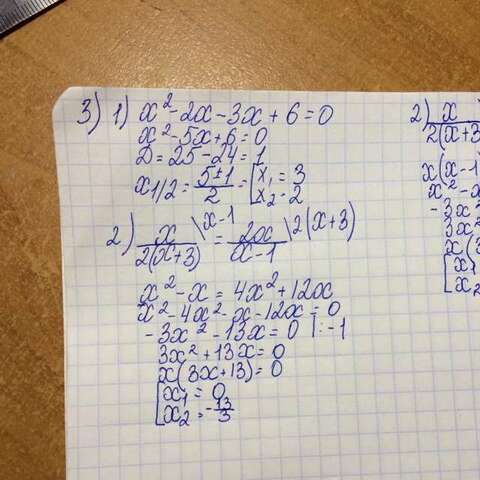 3) 1) x² - 2x - 3x + 6 = 0
x² - 5x + 6 = 0
D = 25 - 24 = 1
x1/2 = (5±1)/2 = [x₁ = 3
x₂ = 2
2) x/(2(x+3)) \x-1 = 2x/(x-1) \2(x+3)
x² - x = 4x² + 12x
x² - 4x² - x - 12x = 0
-3x² - 13x = 0 | : -1
3x² + 13x = 0
x(3x+13) = 0
[x₁ = 0
x₂ = -13/3
2) x
2(x+3
x(x-1
x² - x
-3x²
3x²
x(3
[x₁
x₂